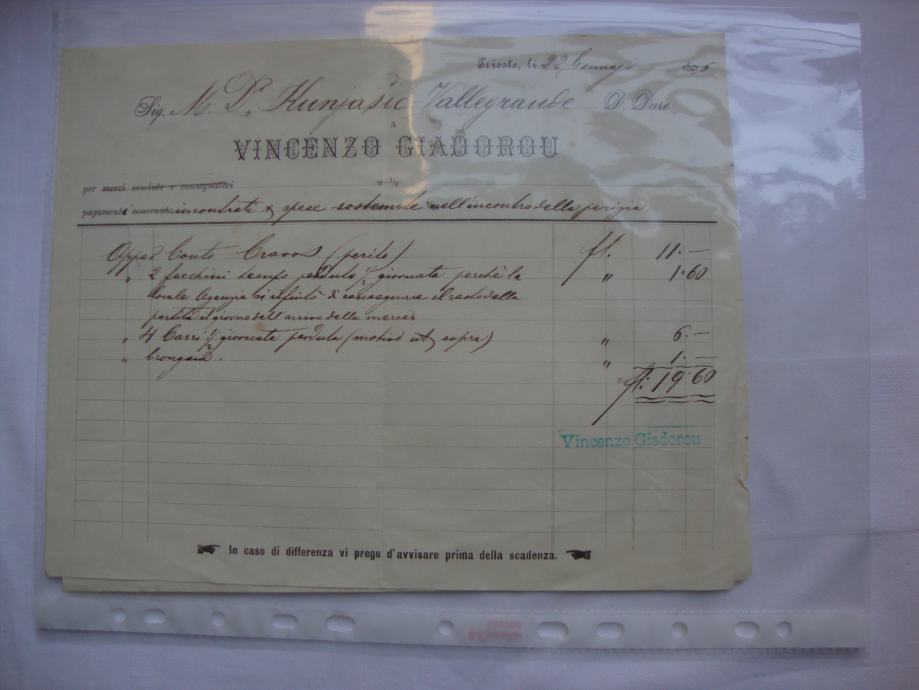 Trieste, li 22 Gennajo 1896
Sig. M. Dr. Kunjašić Vallegrande D Dare
A
VINCENZO GIADOROU
per merci vendute e consegnatevi
pagamenti convenuto incontrate & spese sostenute nell'incontro della perizia
Conto (perito) ff. 11.—
" 2 facchini tempo perduto 1/2 giornata perchè la " 1.60
locale Agenzia si rifiutò di consegnare il resto della
partita il giorno dell'arrivo della merce
" 4 Carri 1/2 giornata perduta (motivo ut sopra) " 6.—
" " 1.—
ff. 19.60
Vincenzo Giadorou
In caso di differenza vi prego d'avvisare prima della scadenza.